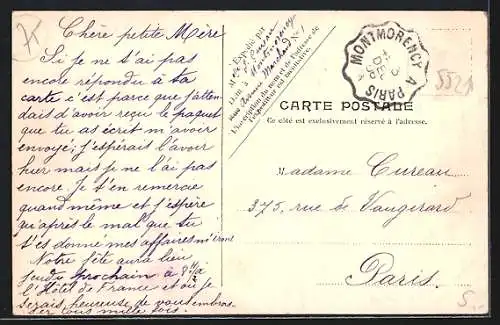 Chère petite Mère
Si je ne t'ai pas
encore répondu à ta
carte c'est parce que j'atten
dais d'avoir reçu le paquet
que tu as écrit m'avoir
envoyé; j'espérais l'avoir
hier mais je ne l'ai pas
encore. Je t'en remercie
quand même et j'espère
qu'après le mal que tu
t'es donné mes affaires m'iront
Notre fête aura lieu
jeudi prochain à 8h 1/2 à
l'Hôtel de France et où je
serais heureuse de vous embras
ser tous mille fois.
Expédié par
M
Montmorency
Marchand
L'inscription du nom et de l'adresse de
l'expéditeur est facultative.
MONTMORENCY A PARIS
5521
CARTE POSTALE
Ce côté est exclusivement réservé à l'adresse.
Madame Cureau
375, rue de Vaugirard
Paris.